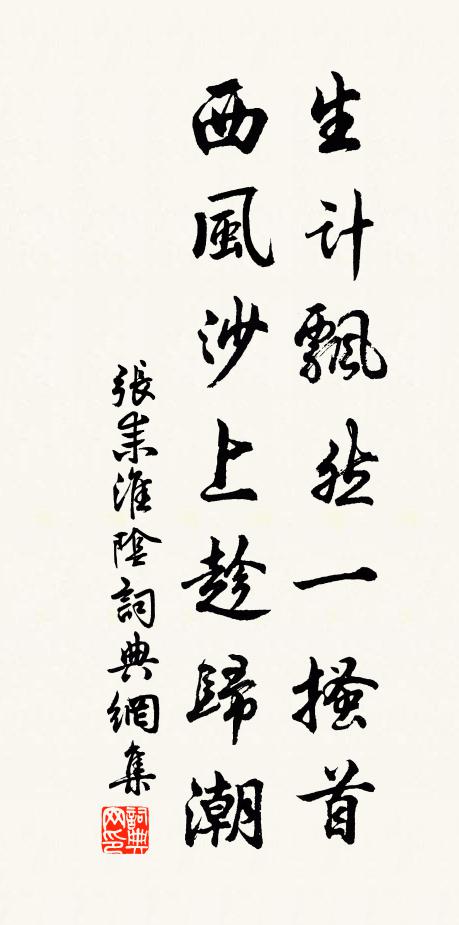 生計飄然一搔首
西風沙上趁歸潮
張耒淮陰詞典網集
詞典网印